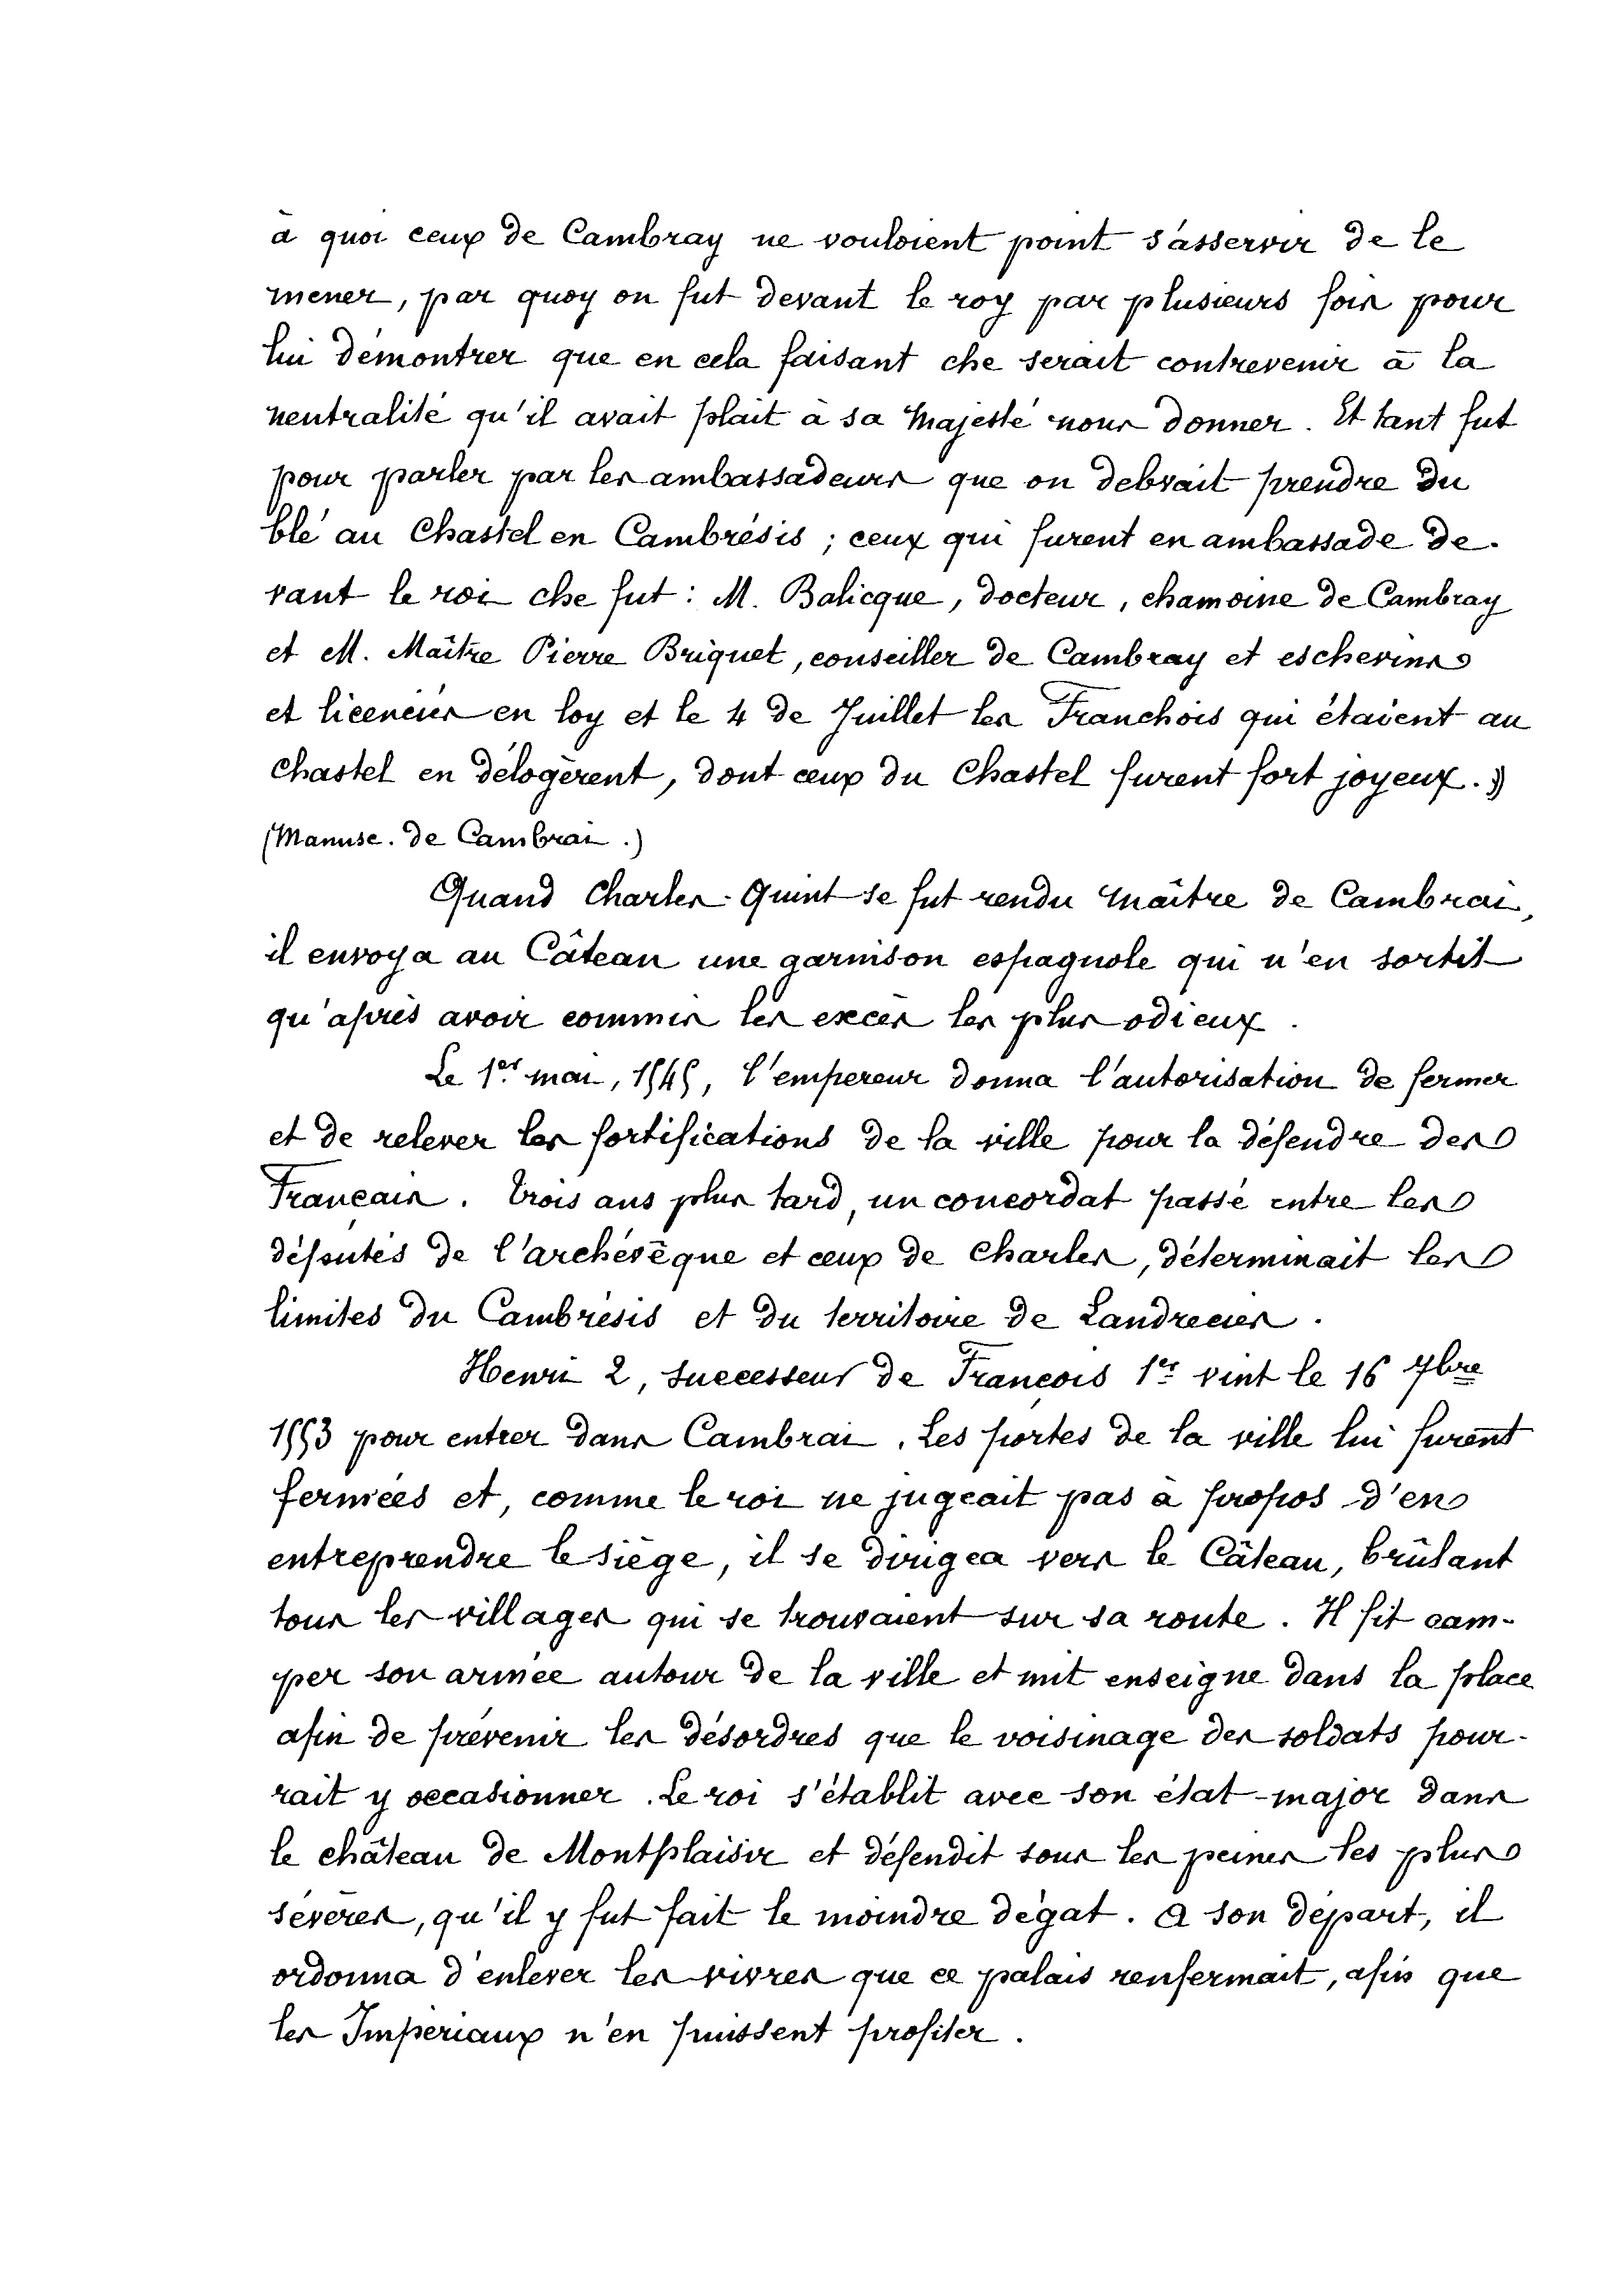 à quoi ceux de Cambray ne vouloient point s'asservir de le
mener, par quoy on fut devant le roy par plusieurs fois pour
lui démontrer que en cela faisant che serait contrevenir à la
neutralité qu'il avait plait à sa Majesté nous donner. Et tant fut
pour parler par les ambassadeurs que on debvait prendre du
blé au Chastel en Cambrésis ; ceux qui furent en ambassade de-
vant le roi che fut : M. Balicque, docteur, chamoine de Cambray
et M. Maître Pierre Briquet, conseiller de Cambray et eschevins
et licenciés en loy et le 4 de Juillet les Franchois qui étaient au
Chastel en délogèrent, dont ceux du Chastel furent fort joyeux. »
(Manusc. de Cambrai.)
Quand Charles-Quint se fut rendu maître de Cambrai,
il envoya au Câteau une garnison espagnole qui n'en sortit
qu'après avoir commis les excès les plus odieux.
Le 1er mai, 1545, l'empereur donna l'autorisation de fermer
et de relever les fortifications de la ville pour la défendre des
Français. Trois ans plus tard, un concordat passé entre les
députés de l'archévêque et ceux de Charles, déterminait les
limites du Cambrésis et du territoire de Landrecies.
Henri 2, successeur de François 1er vint le 16 7bre
1553 pour entrer dans Cambrai. Les portes de la ville lui furent
fermées et, comme le roi ne jugeait pas à propos d'en
entreprendre le siège, il se dirigea vers le Câteau, brûlant
tous les villages qui se trouvaient sur sa route. Il fit cam-
per son armée autour de la ville et mit enseigne dans la place
afin de prévenir les désordres que le voisinage des soldats pour-
rait y occasionner. Le roi s'établit avec son état-major dans
le château de Montplaisir et défendit sous les peines les plus
sévères, qu'il y fut fait le moindre dégat. A son départ, il
ordonna d'enlever les vivres que ce palais renfermait, afin que
les Impériaux n'en puissent profiter.